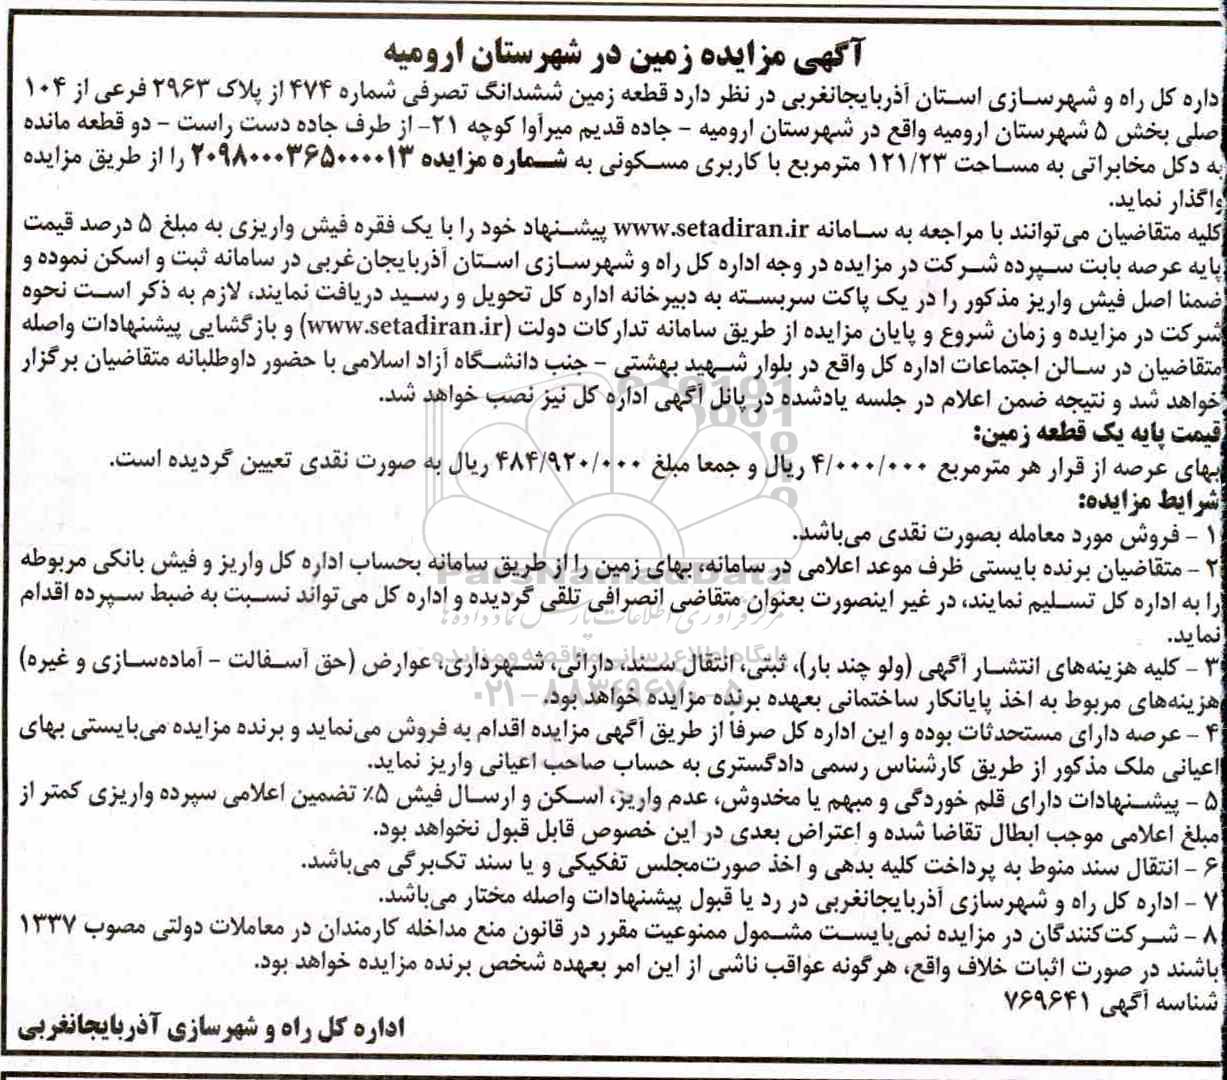 آگهی مزایده زمین در شهرستان ارومیه
اداره کل راه و شهرسازی استان آذربایجانغربی در نظر دارد قطعه زمین ششدانگ تصرفی شماره ۴۷۴ از پلاک ۲۹۶۳ فرعی از ۱۰۴
اصلی بخش ۵ شهرستان ارومیه واقع در شهرستان ارومیه - جاده قدیم میرآوا کوچه ۲۱- از طرف جاده دست راست - دو قطعه مانده
به دکل مخابراتی به مساحت ۱۲۱/۲۳ مترمربع با کاربری مسکونی به شماره مزایده ۲۰۹۸۰۰۰۳۶۵۰۰۰۰۱۳ را از طریق مزایده
واگذار نماید.
کلیه متقاضیان می‌توانند با مراجعه به سامانه www.setadiran.ir پیشنهاد خود را با یک فقره فیش واریزی به مبلغ ۵ درصد قیمت
پایه عرصه بابت سپرده شرکت در مزایده در وجه اداره کل راه و شهرسازی استان آذربایجان‌غربی در سامانه ثبت و اسکن نموده و
ضمنا اصل فیش واریز مذکور را در یک پاکت سربسته به دبیرخانه اداره کل تحویل و رسید دریافت نمایند، لازم به ذکر است نحوه
شرکت در مزایده و زمان شروع و پایان مزایده از طریق سامانه تدارکات دولت (www.setadiran.ir) و بازگشایی پیشنهادات واصله
متقاضیان در سالن اجتماعات اداره کل واقع در بلوار شهید بهشتی - جنب دانشگاه آزاد اسلامی با حضور داوطلبانه متقاضیان برگزار
خواهد شد و نتیجه ضمن اعلام در جلسه یادشده در پانل آگهی اداره کل نیز نصب خواهد شد.
قیمت پایه یک قطعه زمین:
بهای عرصه از قرار هر مترمربع ۴/۰۰۰/۰۰۰ ریال و جمعا مبلغ ۴۸۴/۹۲۰/۰۰۰ ریال به صورت نقدی تعیین گردیده است.
شرایط مزایده:
۱ - فروش مورد معامله بصورت نقدی می‌باشد.
۲ - متقاضیان برنده بایستی ظرف موعد اعلامی در سامانه، بهای زمین را از طریق سامانه بحساب اداره کل واریز و فیش بانکی مربوطه
را به اداره کل تسلیم نمایند، در غیر اینصورت بعنوان متقاضی انصرافی تلقی گردیده و اداره کل می‌تواند نسبت به ضبط سپرده اقدام
نماید.
ParsNamadData
مرکز فرآوری اطلاعات پارس نماد داده ها
پایگاه اطلاع رسانی مناقصه و مزایده
۳ - کلیه هزینه‌های انتشار آگهی (ولو چند بار)، ثبتی، انتقال سند، دارائی، شهرداری، عوارض (حق آسفالت - آماده‌سازی و غیره)
هزینه‌های مربوط به اخذ پایانکار ساختمانی بعهده برنده مزایده خواهد بود.
۰۲۱-۸۸۳۴۹۶۷۰-۵
۴ - عرصه دارای مستحدثات بوده و این اداره کل صرفاً از طریق آگهی مزایده اقدام به فروش می‌نماید و برنده مزایده می‌بایستی بهای
اعیانی ملک مذکور از طریق کارشناس رسمی دادگستری به حساب صاحب اعیانی واریز نماید.
۵ - پیشنهادات دارای قلم خوردگی و مبهم یا مخدوش، عدم واریز، اسکن و ارسال فیش ۵٪ تضمین اعلامی سپرده واریزی کمتر از
مبلغ اعلامی موجب ابطال تقاضا شده و اعتراض بعدی در این خصوص قابل قبول نخواهد بود.
۶ - انتقال سند منوط به پرداخت کلیه بدهی و اخذ صورت‌مجلس تفکیکی و یا سند تک‌برگی می‌باشد.
۷ - اداره کل راه و شهرسازی آذربایجانغربی در رد یا قبول پیشنهادات واصله مختار می‌باشد.
۸ - شرکت‌کنندگان در مزایده نمی‌بایست مشمول ممنوعیت مقرر در قانون منع مداخله کارمندان در معاملات دولتی مصوب ۱۳۳۷
باشند در صورت اثبات خلاف واقع، هرگونه عواقب ناشی از این امر بعهده شخص برنده مزایده خواهد بود.
شناسه آگهی ۷۶۹۶۴۱
اداره کل راه و شهرسازی آذربایجانغربی